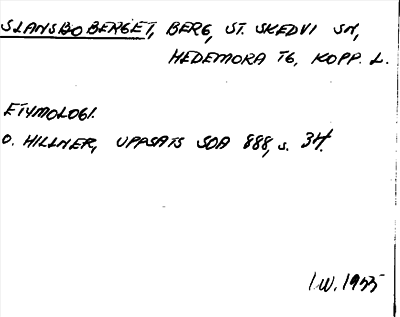 SLANSBOBERGET, BERG, ST. SKEDVI SN,
HEDEMORA TG, KOPP. L.
ETYMOLOGI.
O. HILLNER, UPPSATS SOA 888, s. 34.
I.W. 1955